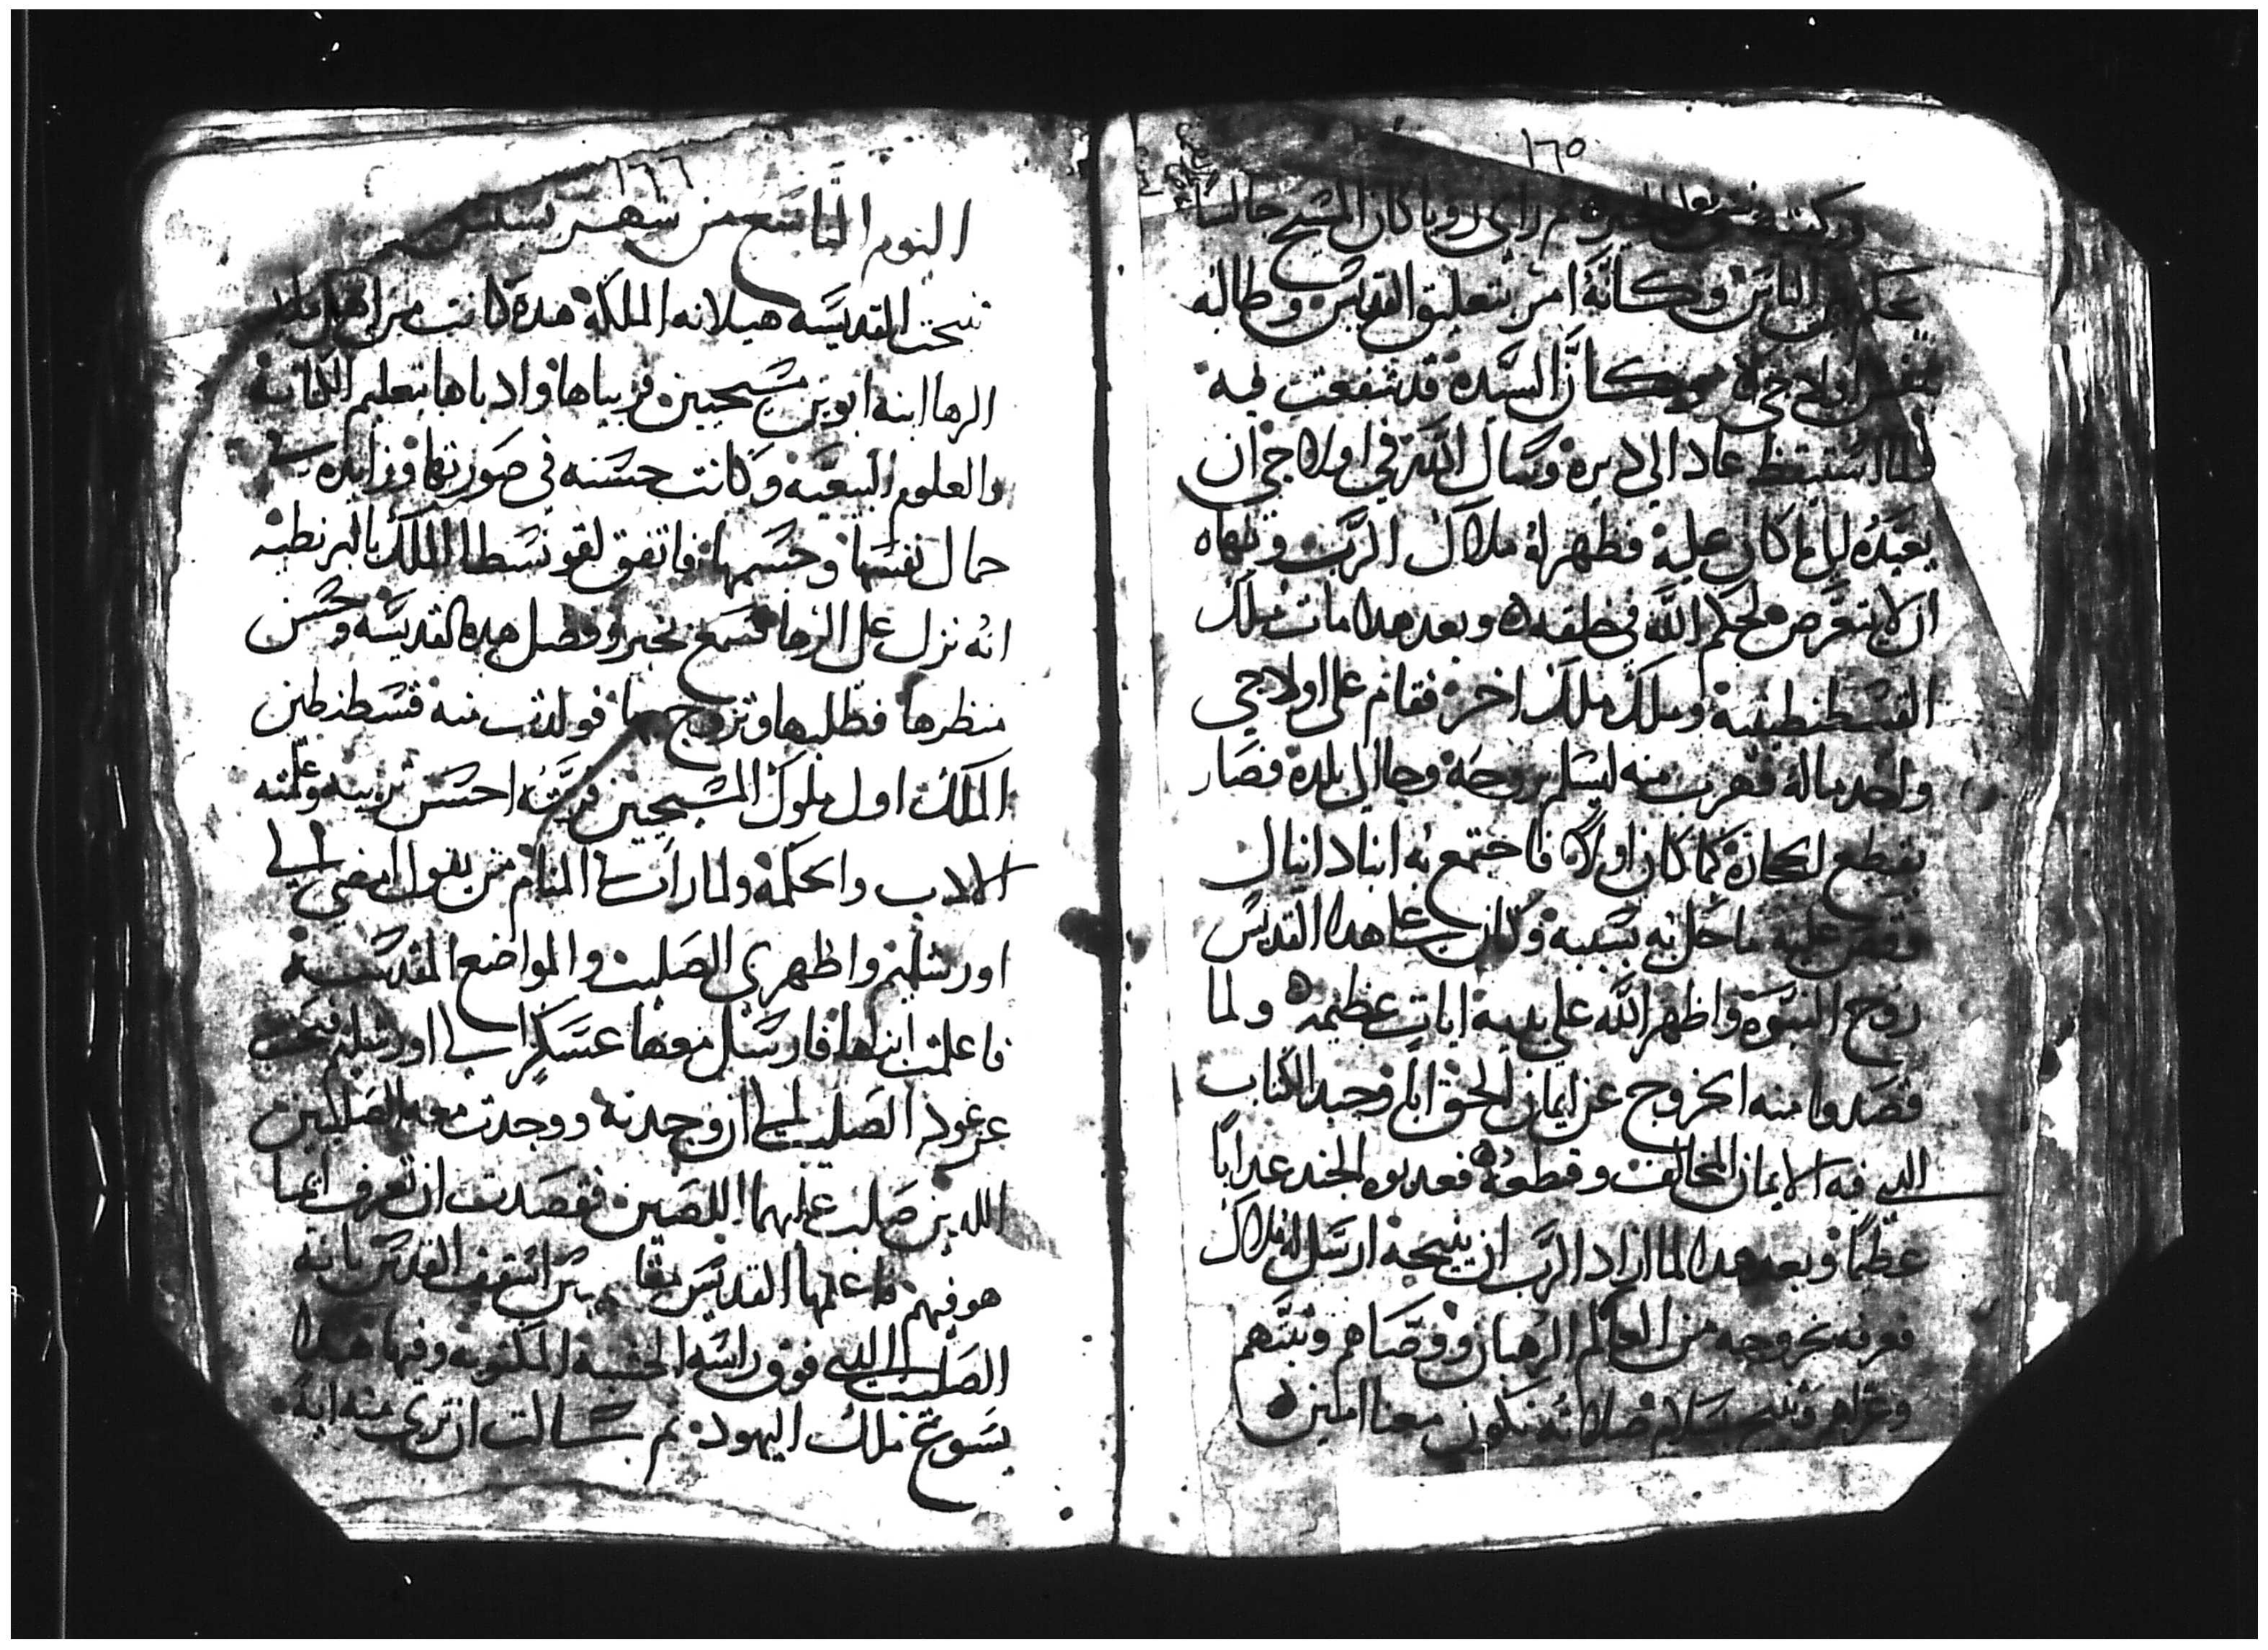 ١٦٥
ثم راي رويا كان المسيح جالسا
يحاكم الناس وكانه امر بتعليق القديس وطالبه
بنفس اولاجي وكان السيده قد شفعت فيه
فلما استيقظ عاد الي ديره وسال الله في اولاجي ان
يعيده الي ما كان عليه فظهر له ملاك الرب ونهاه
ان لا يتعرض لحكم الله في خلقه وبعد هدا مات ملك
القسطنطينيه وملك ملك اخر فقام على اولاجي
واخد ماله فهرب منه ليسلم بروحه وجا الي بلده فصار
يقطع الحجاره كما كان اولا فاجتمع به انبا دانيال
فقص عليه ما حل به بسببه وكان هدا القديس
روح النبوه واظهر الله على يديه ايات عظيمه ولما
قصدوا منه الخروج عن ايمان الحق ابا وجبد الكتاب
الدي فيه الايمان المخالف وقطعه فعدبوه الجند عدابا
عظيما وبعد هدا لما اراد الرب ان ينيحه ارسل له ملاك
فعرفه بخروجه من العالم الرهبان ووصاهم وثبتهم
وعزاهم وتنيح بسلام صلاته تكون معنا امين
١٦٦
اليوم التاسع من شهر بشنس
تنيحت القديسه هيلانه الملكه هده كانت من اهل
الرها ابنه ابوين مسيحيين فربياها وادباها بتعليم الكتابه
والعلوم البيعيه وكانت حسنه في صورتها وزايده في
جمال نفسها وجسمها فاتفق لقونسطا الملك بالبرنطيه
انه نزل على الرها فسمع بخبر وفضل هده القديسه وحسن
منظرها فطلبها وتزوج بها فولدت منه قسطنطين
الملك اول ملوك المسيحيين فربته احسن تربيه وعلمته
الادب والحكمه ولما رات في المنام من يقول امضي الي
اورشليم واظهري الصليب والمواضع المقدسه
فاعلمت ابنها فارسل معها عسكرا الي اورشليم فبحثت
عن عود الصليب الي ان وجدته ووجدت معه الصليبين
اللدين صلب عليهما اللصين فقصدت ان تعرف ايما
هو فيهم فاعلمها القديس مقاريوس اسقف القدس بانه
الصليب الدي فوق راسه الخشبه المكتوبه وفيها هدا
يسوع ملك اليهود ثم سالت ان تري منه ايه